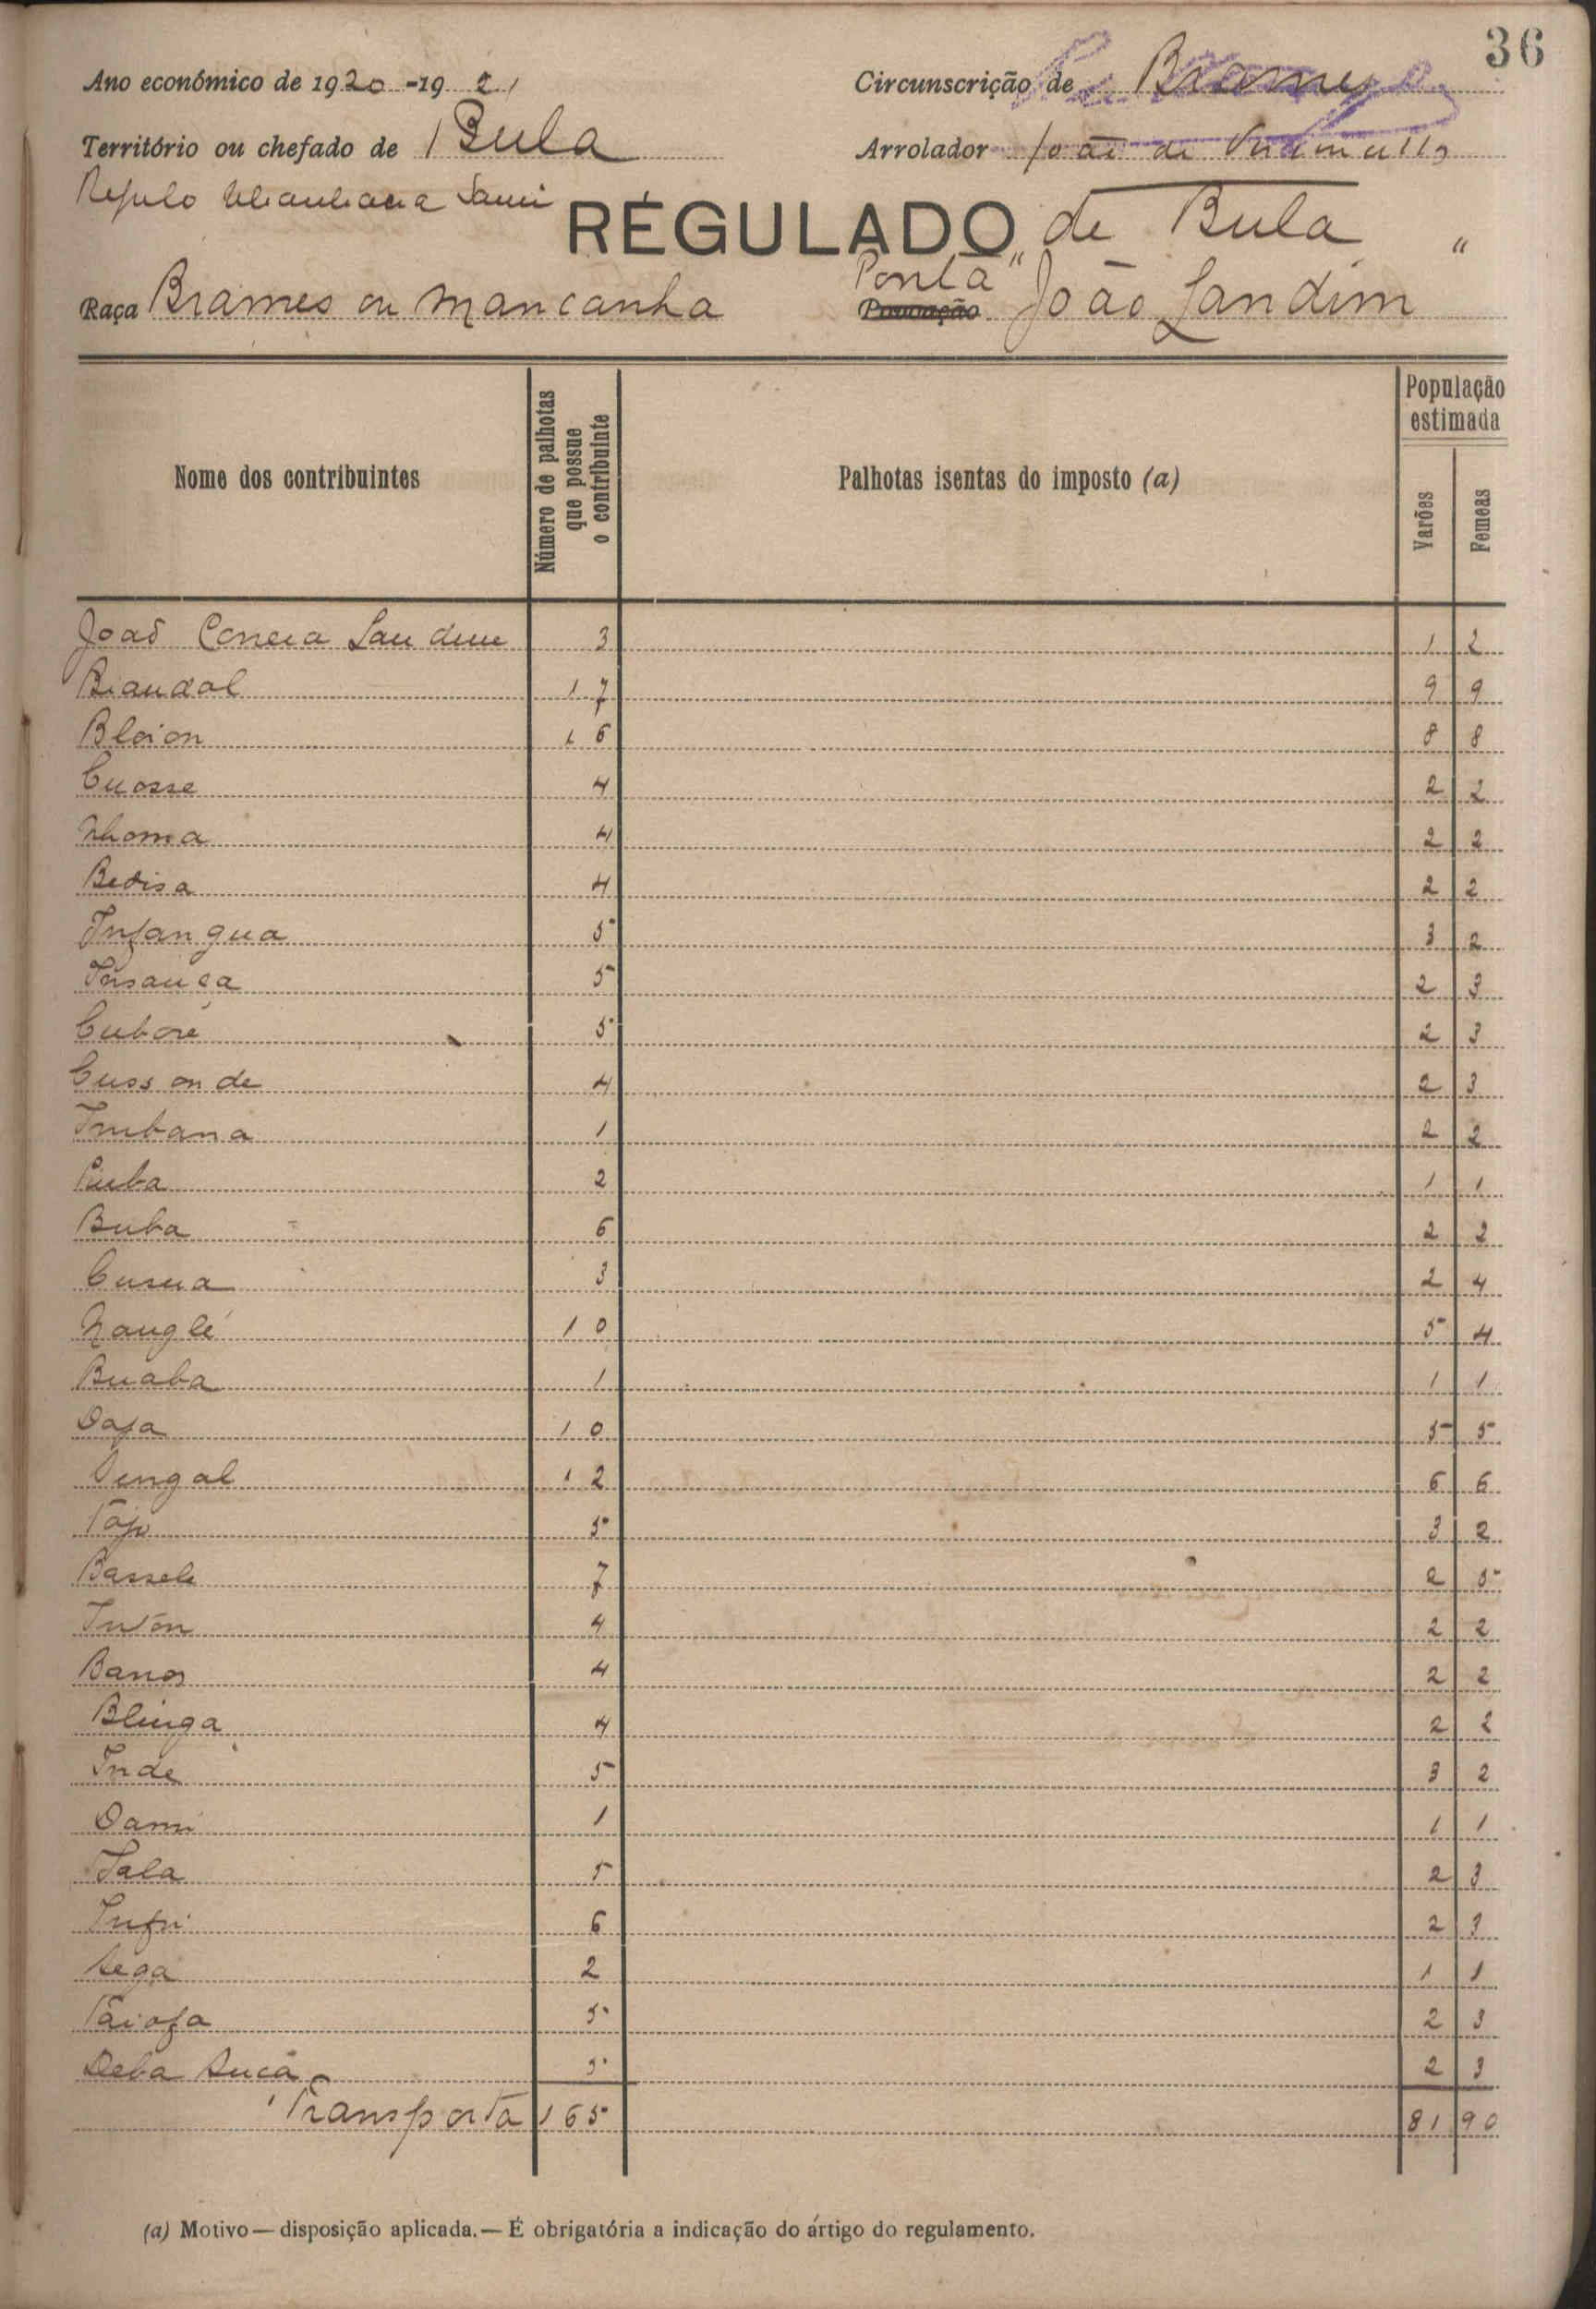 36
Ano económico de 1920-1921 Circunscrição de Brames
Território ou chefado de Bula Arrolador João de
Regulo
RÉGULADO de Bula "
Ponta "
Raça Brames ou Mancanha Povoação João Landim
Nome dos contribuintes
Número de palhotas que possue o contribuinte
Palhotas isentas do imposto (a)
População estimada
Varões
Femeas
João Correia Landim 3 1 2
Biandal 17 9 9
Bloion 16 8 8
Cuosse 4 2 2
Nhoma 4 2 2
Bedisa 4 2 2
Infangua 5 3 2
Insança 5 2 3
Cuboré 5 2 3
Cussonde 4 2 3
Imbana 1 2 2
Cuba 2 1 1
Buba 6 2 2
Cusua 3 2 4
Nanglé 10 5 4
Buaba 1 1 1
Dafa 10 5 5
Dingal 12 6 6
5 3 2
Bassele 7 2 5
Inton 4 2 2
4 2 2
Blinga 4 2 2
Inde 5 3 2
Dami 1 1 1
Tala 5 2 3
Infri 6 2 3
2 1 1
Taiofa 5 2 3
Deba Sucá 5 2 3
Transporta 165 81 90
(a) Motivo — disposição aplicada. — É obrigatória a indicação do ártigo do regulamento.